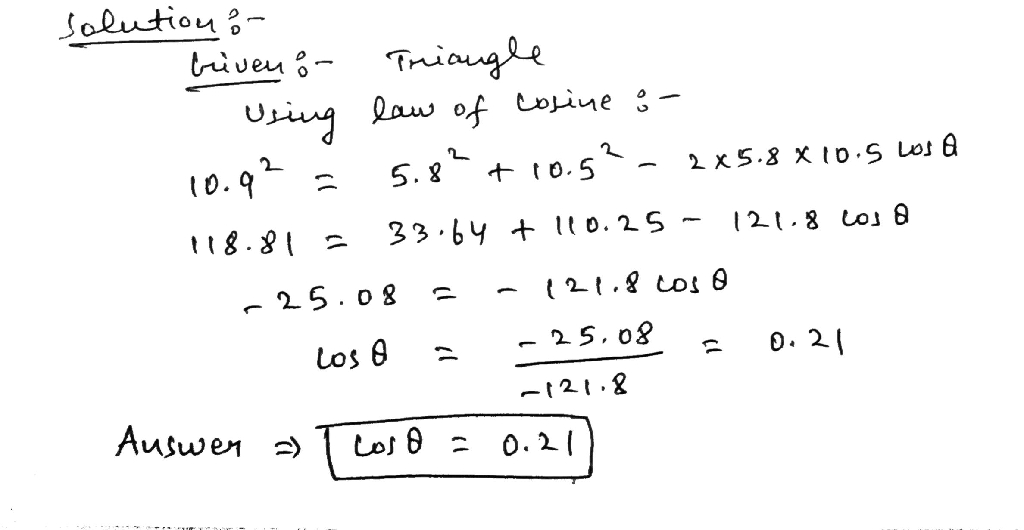 Solution :-
Given :- Triangle
Using law of cosine :-
10.9² = 5.8² + 10.5² - 2 x 5.8 x 10.5 cos θ
118.81 = 33.64 + 110.25 - 121.8 cos θ
- 25.08 = - 121.8 cos θ
cos θ = - 25.08 / -121.8 = 0.21
Answer ⇒ cos θ = 0.21